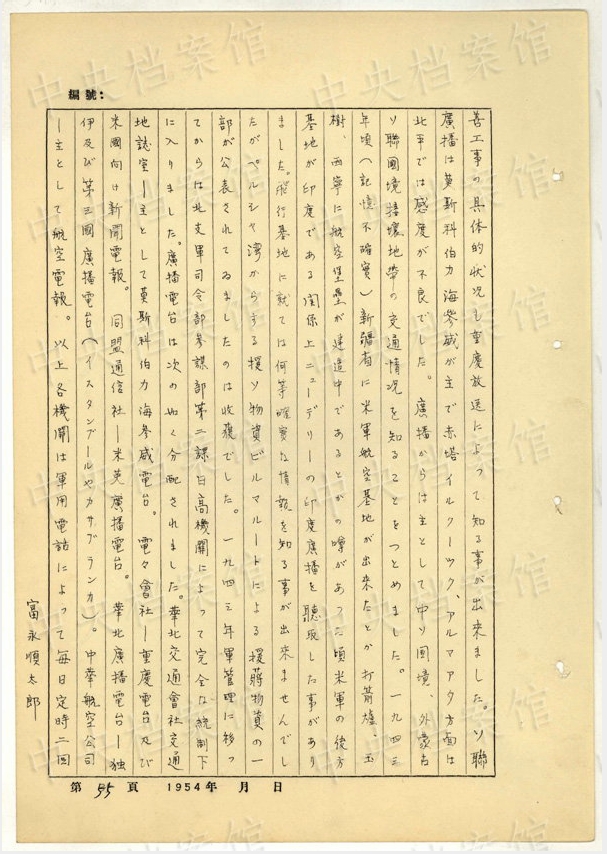 編號：
善工事の具体的狀況も重慶放送によって知る事が出来ました。ソ聯
廣播は莫斯科伯力海參威が主で赤塔イルクーツク、アルマアタ方面は
北平では感度が不良でした。廣播からは主として中ソ国境、外蒙古
ソ聯國境接壤地帯の交通情况を知ることをつとめました。一九四三
年頃（記憶不確實）新疆省に米軍航空基地が出来たとか打箭爐、玉
樹、西寧に航空堡壘が建造中であるとかの噂があった頃米軍の後方
基地が印度である関係上ニューデリーの印度廣播を聽取した事があり
ました。飛行基地に就ては何等確實な情報を知る事が出来ませんでし
たがペルシャ湾からする援ソ物資ビルマルートによる援蔣物資の一
部が公表されてゐましたのは收獲でした。一九四三年軍管理に移っ
てからは北支軍司令部参謀部第二課日高機關によって完全な統制下
に入りました。廣播電台は次の如く分配されました。華北交通會社交通
地誌室ー主として莫斯科伯力海参威電台。電々會社ー重慶電台及び
米國向け新聞電報。同盟通信社ー米英廣播電台。華北廣播電台ー独
伊及び第三國廣播電台（イスタンブールやカサブランカ）。中華航空公司
ー主として航空電報。以上各機関は軍用電話によって毎日定時二回
富永順太郎
第55頁 1954年 月 日
中央档案馆